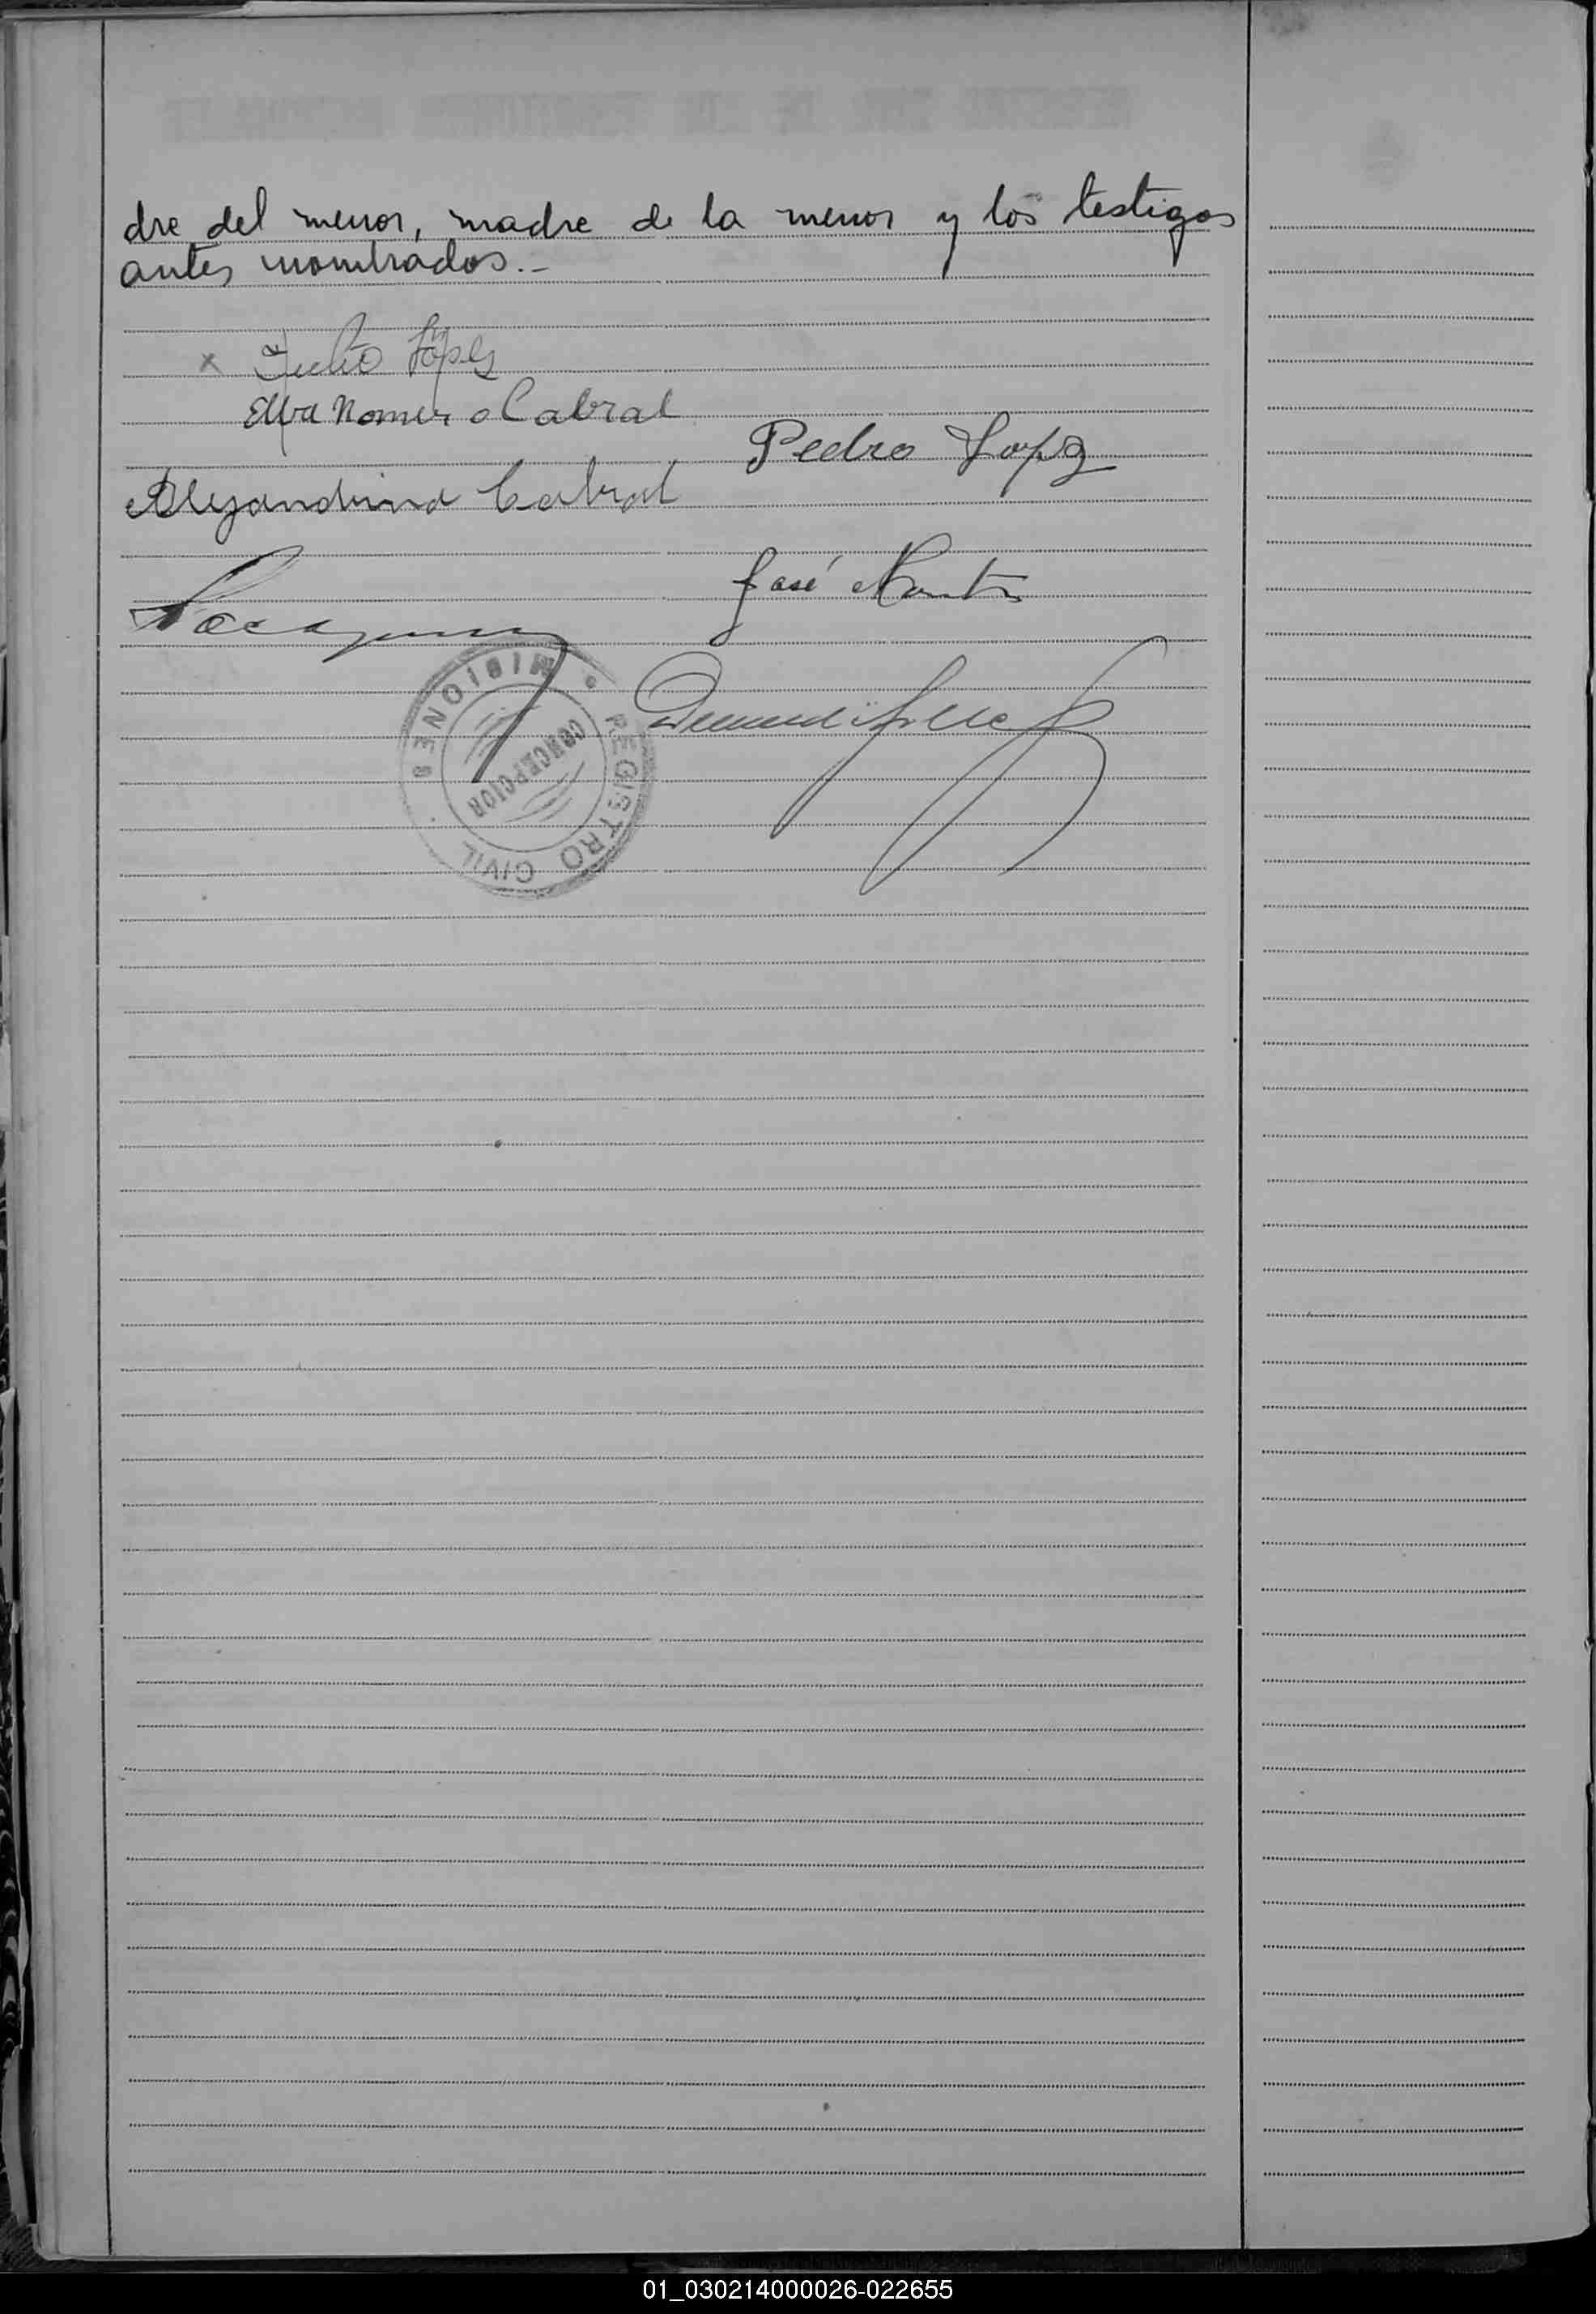 dre del menor, madre de la menor y los testigos
antes nombrados.-
x Julio López
Elva Romero Cabral
Pedro Lopez
Alejandrina Cabral
José
REGISTRO CIVIL
MISIONES
CONCEPCION
01_030214000026-022655